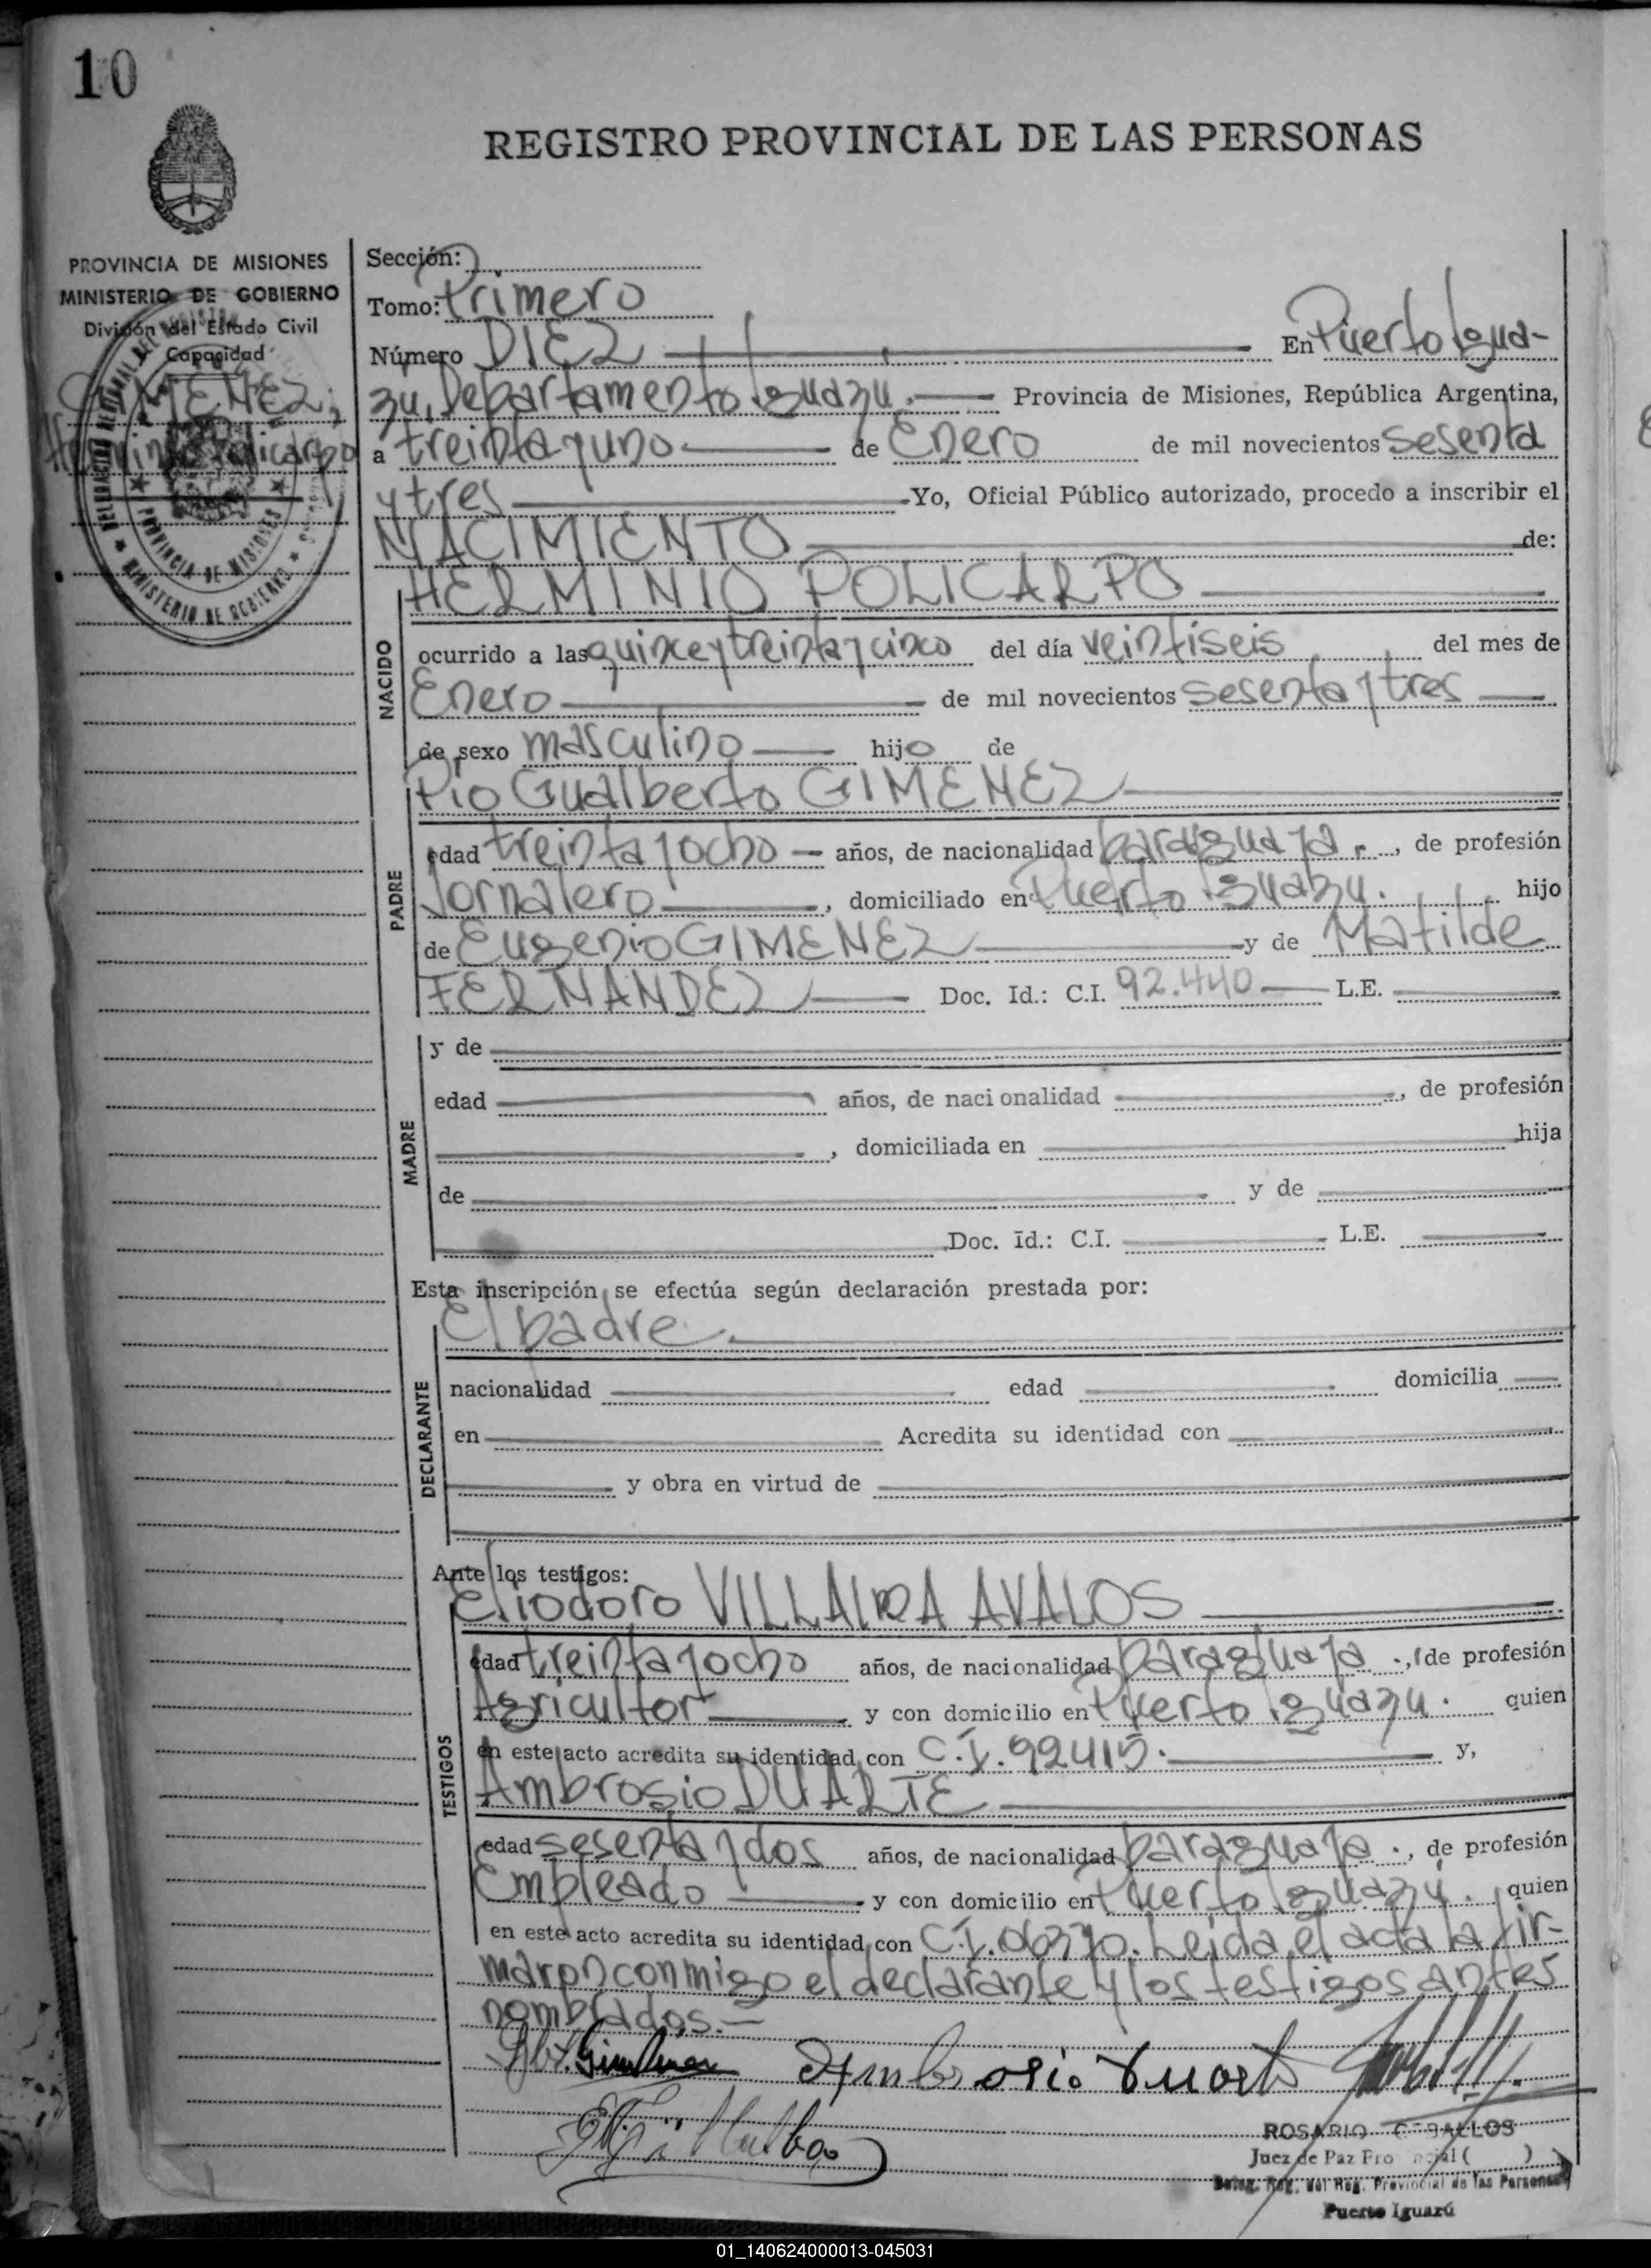 10
REGISTRO PROVINCIAL DE LAS PERSONAS
PROVINCIA DE MISIONES
MINISTERIO DE GOBIERNO
División del Estado Civil
Capacidad
GIMENEZ,
Herminio Policarpo
Sección:
Tomo: Primero
Número DIEZ En Puerto Igua-
zu, Departamento Iguazu. Provincia de Misiones, República Argentina,
a treinta y uno de Enero de mil novecientos sesenta
y tres Yo, Oficial Público autorizado, procedo a inscribir el
NACIMIENTO de:
HERMINIO POLICARPO
NACIDO
ocurrido a las quince y treinta y cinco del día veintiseis del mes de
Enero de mil novecientos sesenta y tres
de sexo masculino hijo de
Pio Gualberto GIMENEZ
PADRE
edad treinta y ocho años, de nacionalidad paraguaya, de profesión
Jornalero, domiciliado en Puerto Iguazu. hijo
de Eugenio GIMENEZ y de Matilde
FERNANDEZ Doc. Id.: C.I. 92.440 L.E.
MADRE
y de
edad años, de nacionalidad , de profesión
, domiciliada en hija
de y de
Doc. Id.: C.I. L.E.
Esta inscripción se efectúa según declaración prestada por:
El padre.
DECLARANTE
nacionalidad edad domicilia
en Acredita su identidad con
y obra en virtud de
Ante los testigos:
Eliodoro VILLALBA AVALOS
TESTIGOS
edad treinta y ocho años, de nacionalidad paraguaya, de profesión
Agricultor y con domicilio en Puerto Iguazu. quien
en este acto acredita su identidad con C.I. 92415. y,
Ambrosio DUARTE
edad sesenta y dos años, de nacionalidad paraguaya, de profesión
Empleado y con domicilio en Puerto Iguazu. quien
en este acto acredita su identidad con C.I. 06370. Leida el acta la fir-
maron conmigo el declarante y los testigos antes
nombrados.
Ambrosio Duarte
ROSARIO CEBALLOS
Juez de Paz
Deleg. Reg. del Reg. Provincial de las Personas
Puerto Iguazú
01_140624000013-045031